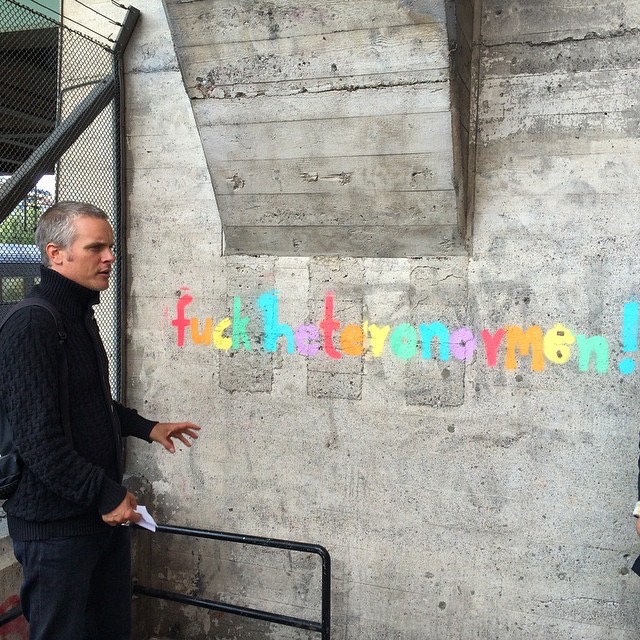 fuck heteronormen!